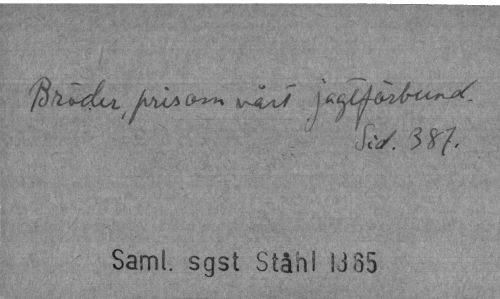 Bröder, prisom vårt jagtförbund.
Sid. 387.
Saml. sgst Ståhl 1365